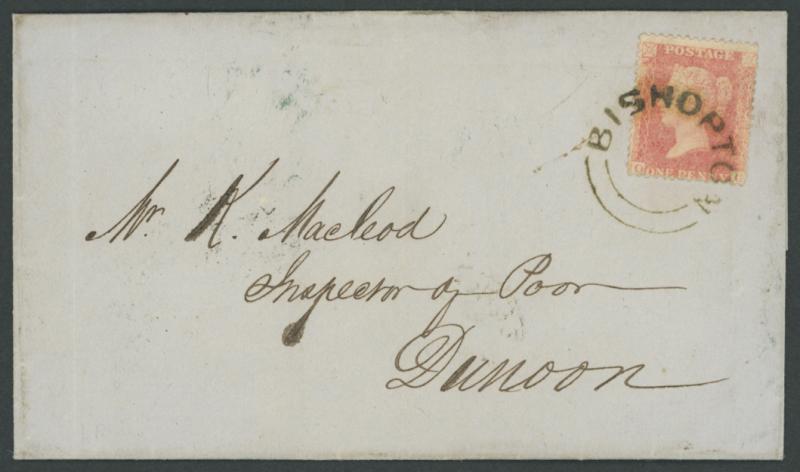 POSTAGE
BISHOPTON
ONE PENNY
Mr K. Macleod
Inspector of Poor
Dunoon